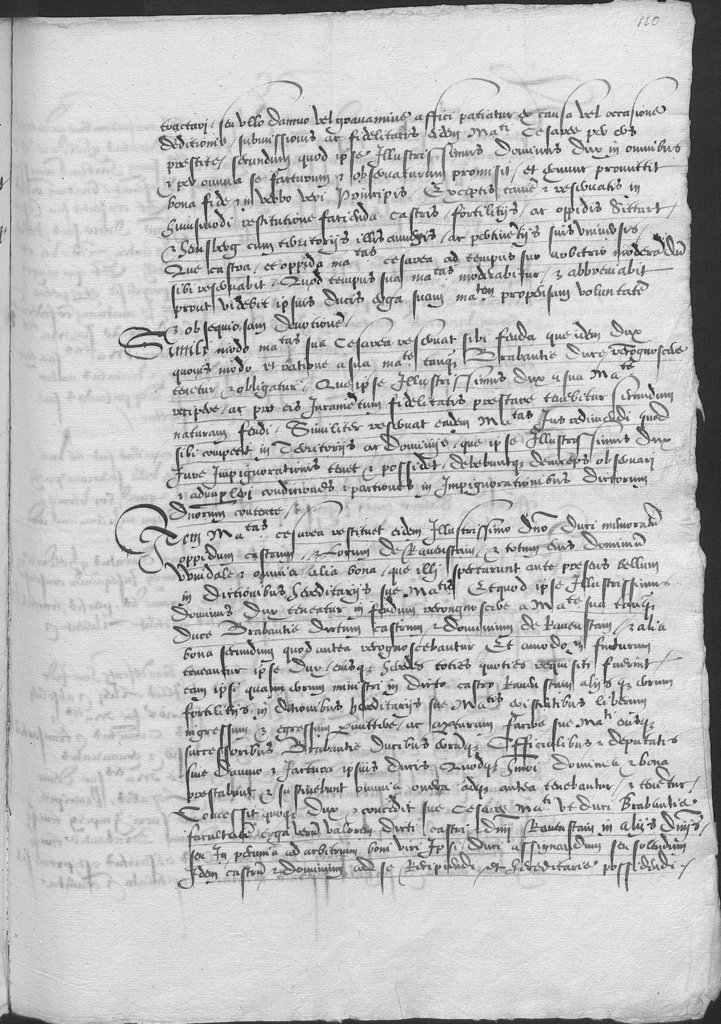 110
tractari, seu ullo damno vel gravamine affici patiatur ex causa vel occasione
deditionis, submissionis ac fidelitatis eidem Ma^ti Cesaree per eos
prestite, secundum quod ipse Illustrissimus Dominus Dux in omnibus
& per omnia se facturum & observaturum promisit, et tenore promittit
bona fide & in verbo veri Principis, Exceptis tamen & reservatis in
huiusmodi restitutione facienda castris, fortilitijs, ac oppidis Sittart,
& Hensberg cum territorijs illis annexis, ac pertinentijs suis universis,
Que castra, et oppida ma^tas cesarea ad tempus suo arbitrio moderandum
sibi reservabit, Quod tempus sua ma^tas moderabitur, & abbreviabit
prout videbit ipsius ducis erga suam ma^tem propensam voluntatem
& obsequiosam devotionem,
Simili modo ma^tas sua Cesarea reservat sibi feuda que idem Dux
quovis modo et ratione a sua ma^te tanq3 Brabantie duce recognoscere
tenetur & obligatur, Que ipse Illustrissimus Dux a sua Ma^te
recipere, ac pro eis Juramentum fidelitatis prestare tenebitur secundum
naturam feudi, Similiter reservat eadem Ma^tas Jus redimendi quod
sibi competit in Territorijs ac Dominijs, que ipse Illustrissimus Dux
Jure Impignorationis tenet, & possidet, debebuntq3 deinceps observari
& adimpleri conditiones & pactiones in Impignorationibus dictorum
Dnorum contente,
Item Ma^tas cesarea restituet eidem Illustrissimo Dno Duci memorato
oppidum castrum, & Forum de Ravenstain, & totum eius dominium
Wynidale & omnia alia bona, que illi spectarunt ante presens bellum
in dictionibus hereditarijs sue Ma^tis Et quod ipse Illustrissimus
Dominus Dux teneatur in feudum recognoscere a Ma^te sua tanq3
Duce Brabantie dictum castrum & dominium de Ravenstain, & alia
bona secundum quod antea recognoscebantur Et amodo in futurum
teneantur ipse Dux, eiusq3 heredes toties quoties requisiti fuerint
tam ipse quam eorum ministri in dicto castro Ravenstain alijsq3 eorum
fortilitijs in ditionibus hereditarijs sue Ma^tis existentibus liberum
ingressum & egressum permittere, ac aperturam facere sue Ma^ti eiusq3
successoribus Brabantie Ducibus eorumq3 Officialibus & deputatis
sine damno & Jactura ipsius ducis Quodq3 huiusmodi dominia & bona
prestabunt & sustinebunt omnia onera adq3 antea tenebantur, & tenentur,
Concessit quoq3 Dux, & concedit sue Cesaree Ma^ti ut duci Brabantie
facultatem erga verum valorem dicti castri & dmij Ravenstain in alijs dmijs,
seu In pecunia ad arbitrium boni viri Ipsi duci assignandum seu solvendum
Idem castrum & dominium ad se Recipiendi, et hereditarie possidendi.